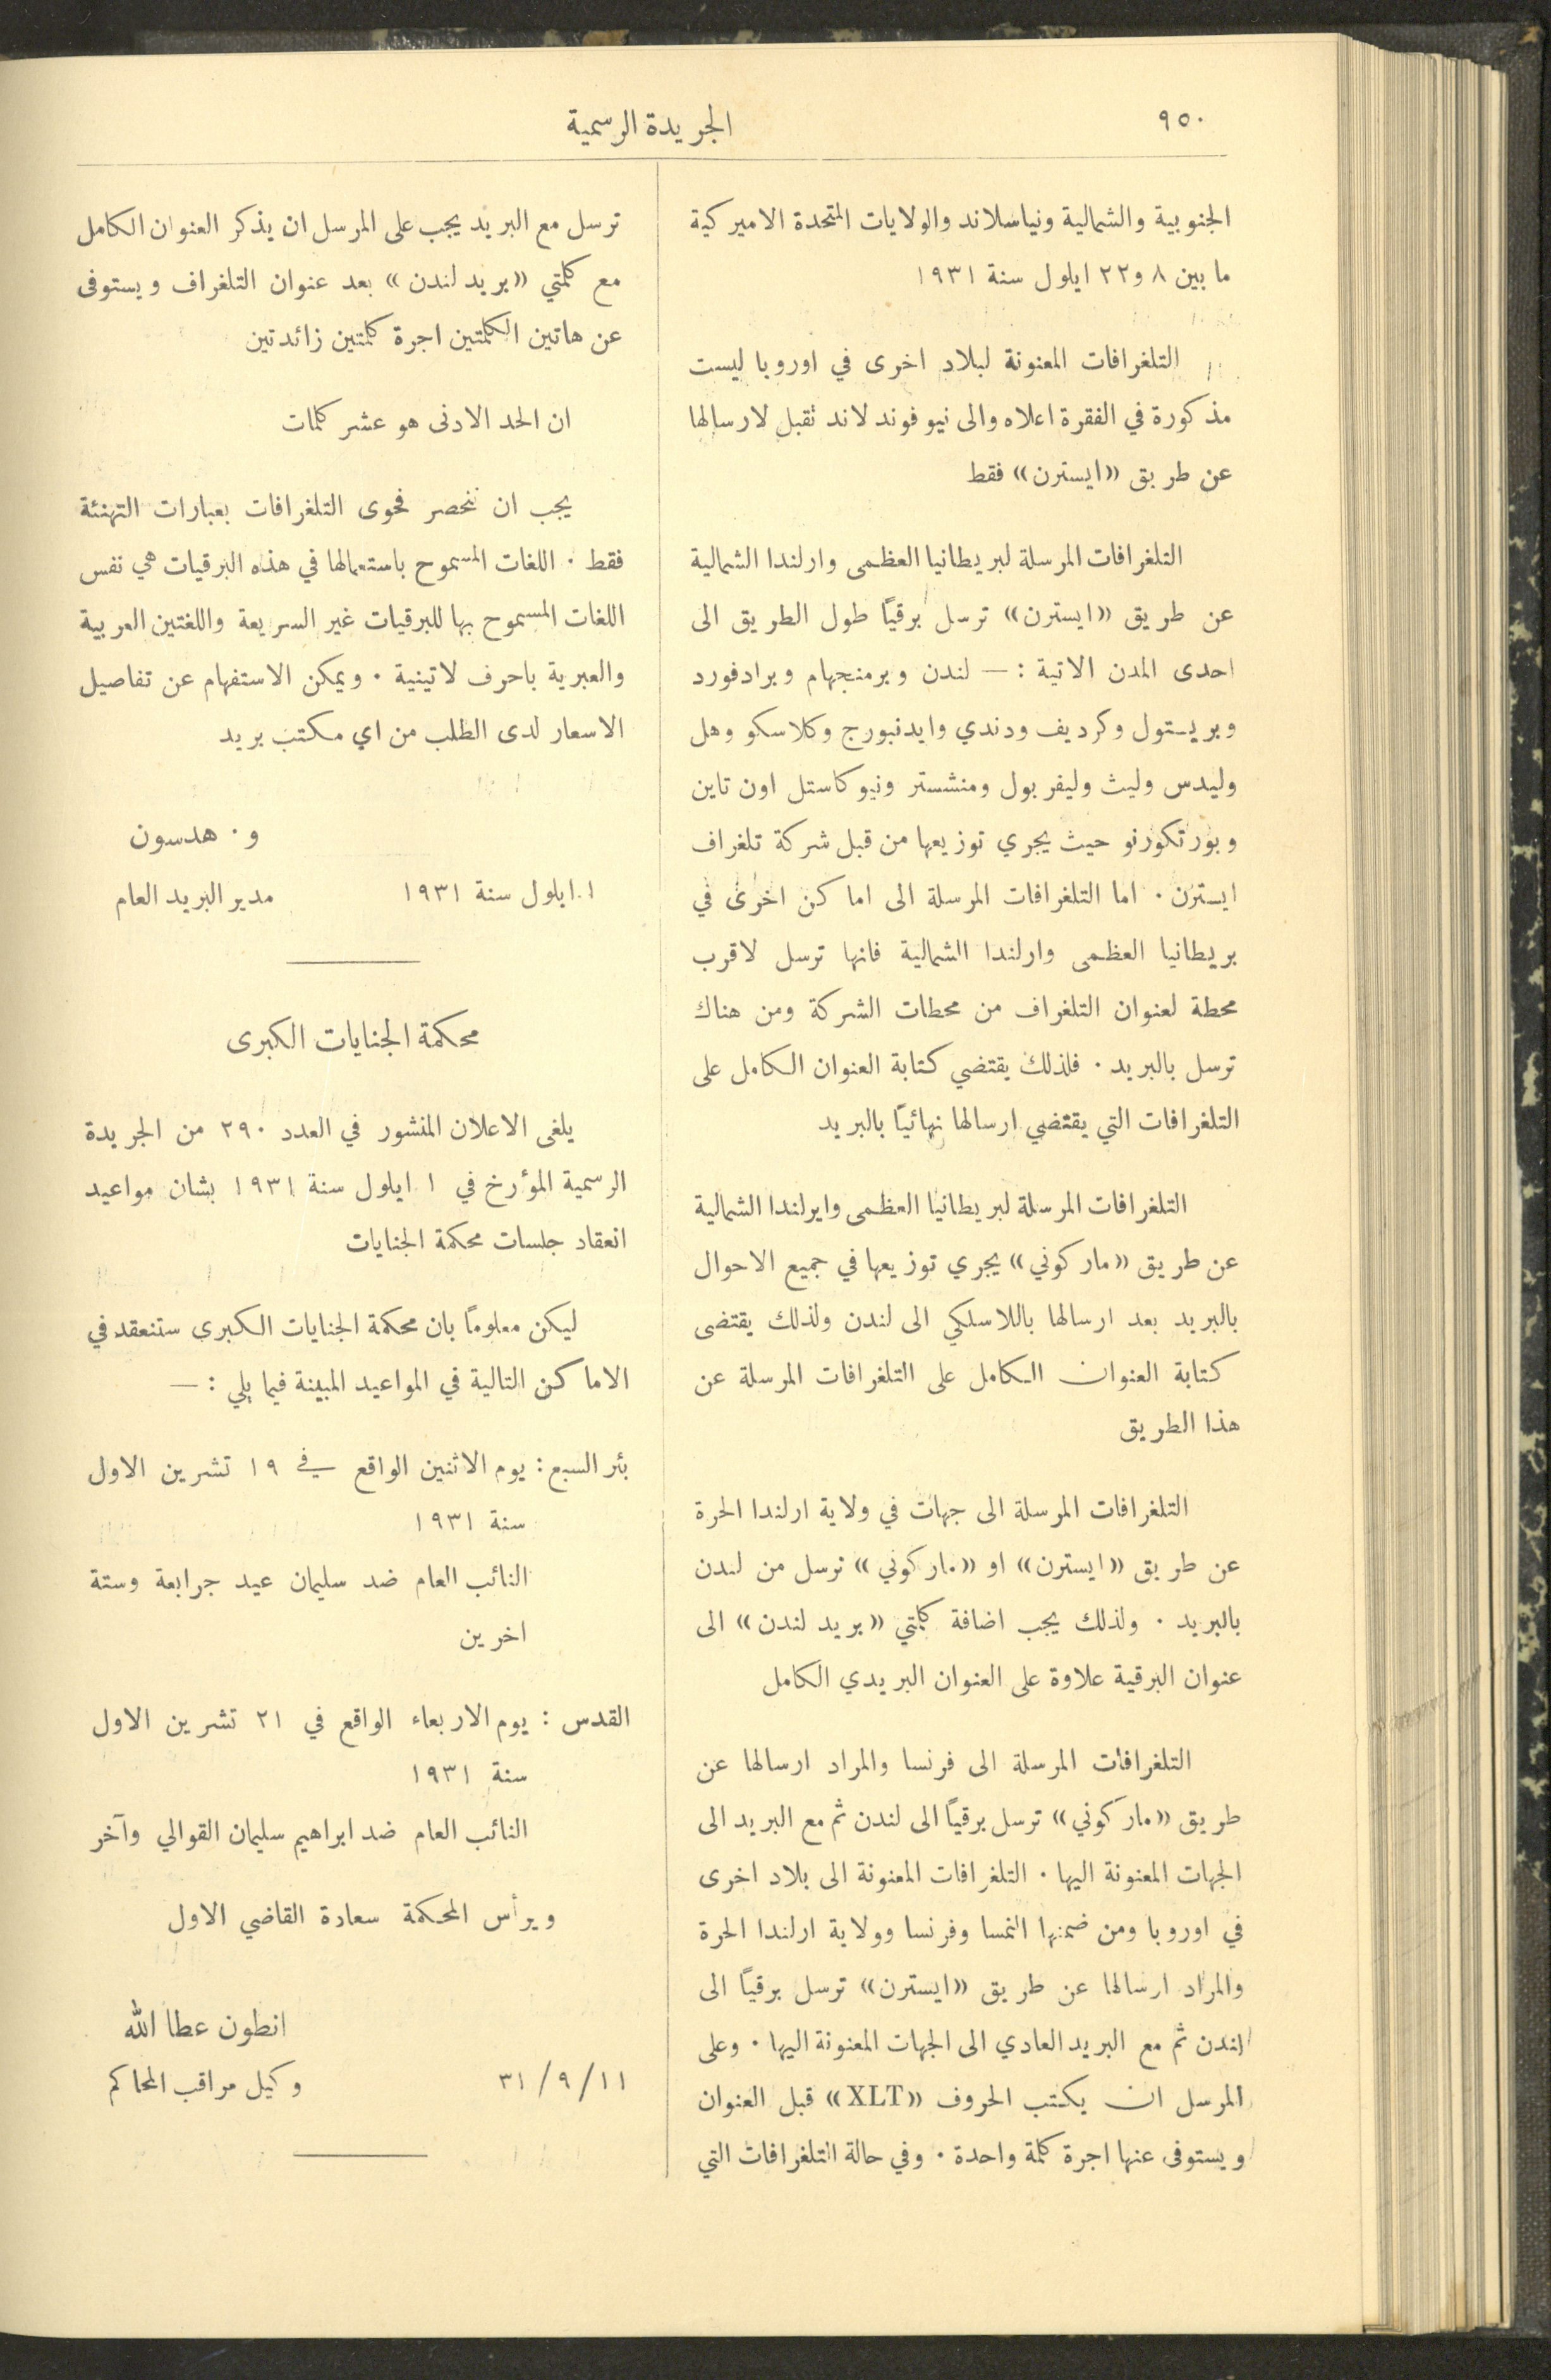 ٩٥٠
الجريدة الرسمية
الجنوبية والشمالية ونياسلاند والولايات المتحدة الاميركية
ما بين ٨ و٢٢ ايلول سنة ١٩٣١
التلغرافات المعنونة لبلاد اخرى في اوروبا ليست
مذكورة في الفقرة اعلاه والى نيوفوندلاند تقبل لارسالها
عن طريق «ايسترن» فقط
التلغرافات المرسلة لبريطانيا العظمى وارلندا الشمالية
عن طريق «ايسترن» ترسل برقياً طول الطريق الى
احدى المدن الاتية : — لندن وبرمنجهام وبرادفورد
وبريستول وكرديف ودندي وايدنبورج وكلاسكو وهل
وليدس وليث وليفربول ومنشستر ونيوكاستل اون تاين
وبورتكورنو حيث يجري توزيعها من قبل شركة تلغراف
ايسترن . اما التلغرافات المرسلة الى اماكن اخرى في
بريطانيا العظمى وارلندا الشمالية فانها ترسل لاقرب
محطة لعنوان التلغراف من محطات الشركة ومن هناك
ترسل بالبريد . فلذلك يقتضي كتابة العنوان الكامل على
التلغرافات التي يقتضي ارسالها نهائياً بالبريد
التلغرافات المرسلة لبريطانيا العظمى وايرلندا الشمالية
عن طريق «ماركوني» يجري توزيعها في جميع الاحوال
بالبريد بعد ارسالها باللاسلكي الى لندن ولذلك يقتضى
كتابة العنوان الكامل على التلغرافات المرسلة عن
هذا الطريق
التلغرافات المرسلة الى جهات في ولاية ارلندا الحرة
عن طريق «ايسترن» او «ماركوني» ترسل من لندن
بالبريد . ولذلك يجب اضافة كلمتي «بريد لندن» الى
عنوان البرقية علاوة على العنوان البريدي الكامل
التلغرافات المرسلة الى فرنسا والمراد ارسالها عن
طريق «ماركوني» ترسل برقياً الى لندن ثم مع البريد الى
الجهات المعنونة اليها . التلغرافات المعنونة الى بلاد اخرى
في اوروبا ومن ضمنها النمسا وفرنسا وولاية ارلندا الحرة
والمراد ارسالها عن طريق «ايسترن» ترسل برقياً الى
لندن ثم مع البريد العادي الى الجهات المعنونة اليها . وعلى
المرسل ان يكتب الحروف «XLT» قبل العنوان
ويستوفى عنها اجرة كلمة واحدة . وفي حالة التلغرافات التي
ترسل مع البريد يجب على المرسل ان يذكر العنوان الكامل
مع كلمتي «بريد لندن» بعد عنوان التلغراف ويستوفى
عن هاتين الكلمتين اجرة كلمتين زائدتين
ان الحد الادنى هو عشر كلمات
يجب ان تنحصر فحوى التلغرافات بعبارات التهنئة
فقط . اللغات المسموح باستعمالها في هذه البرقيات هي نفس
اللغات المسموح بها للبرقيات غير السريعة واللغتين العربية
والعبرية باحرف لاتينية . ويمكن الاستفهام عن تفاصيل
الاسعار لدى الطلب من اي مكتب بريد
و . هدسون
١ . ايلول سنة ١٩٣١ مدير البريد العام
محكمة الجنايات الكبرى
يلغى الاعلان المنشور في العدد ٢٩٠ من الجريدة
الرسمية المؤرخ في ١ ايلول سنة ١٩٣١ بشان مواعيد
انعقاد جلسات محكمة الجنايات
ليكن معلوماً بان محكمة الجنايات الكبرى ستنعقد في
الاماكن التالية في المواعيد المبينة فيما يلي : —
بئر السبع : يوم الاثنين الواقع في ١٩ تشرين الاول
سنة ١٩٣١
النائب العام ضد سليمان عيد جرابعة وستة
اخرين
القدس : يوم الاربعاء الواقع في ٢١ تشرين الاول
سنة ١٩٣١
النائب العام ضد ابراهيم سليمان القوالي وآخر
ويرأس المحكمة سعادة القاضي الاول
انطون عطا الله
١١/٩/٣١ وكيل مراقب المحاكم